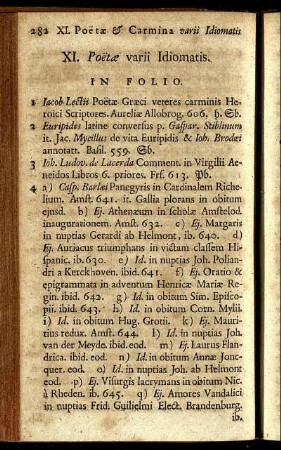 282 XI. Poëtæ & Carmina varii Idiomatis
XI. Poëtæ varii Idiomatis.
IN FOLIO.
1 Iacob Lectis Poëtæ Græci veteres carminis He-
roici Scriptores. Aureliæ Allobrog. 606. h. Sb.
2 Euripides latine conversus p. Gaspar. Stiblinum
it. Jac. Mycillus de vita Euripidis & Ioh. Brodæi
annotatt. Basil. 559. Sb.
3 Ioh. Ludov. de Lacerda Comment. in Virgilii Æ-
neidos Libros 6. priores. Frf. 613. Pb.
4 a) Casp. Barlæi Panegyris in Cardinalem Riche-
lium. Amst. 641. it. Gallia plorans in obitum
ejusd. b) Ej. Athenæum in scholæ Amstelod.
inaugurationem. Amst. 632. c) Ej. Margaris
in nuptias Gerardi ab Helmont, ib. 640. d)
Ej. Auriacus triumphans in victam classem Hi-
spanic. ib. 630. e) Id. in nuptias Joh. Polian-
dri a Kerckhoven. ibid. 641. f) Ej. Oratio &
epigrammata in adventum Henricæ Mariæ Re-
gin. ibid. 642. g) Id. in obitum Sim. Episco-
pii. ibid. 643. h) Id. in obitum Corn. Mylii.
i) Id. in obitum Hug. Grotii. k) Ej. Mauri-
tius redux. Amst. 644. l) Id. in nuptias Joh.
van der Meyde. ibid. eod. m) Ej. Laurus Flan-
drica. ibid. eod. n) Id. in obitum Annæ Jonc-
quer. eod. o) Id. in nuptias Joh. ab Helmont
eod. p) Ej. Visurgis lacrymans in obitum Nic.
à Rheden. ib. 645. q) Ej. Amores Vandalici
in nuptias Frid. Guilielmi Elect. Brandenburg.
ib.